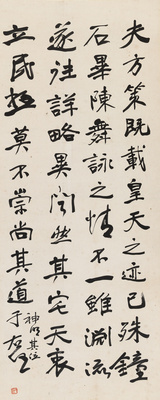 夫方策既載皇天之迹已殊鐘
石畢陳舞詠之情不一雖淵流
遂往詳略異聞然其宅天衷
立民極莫不崇尚其道
神明其位
于右任